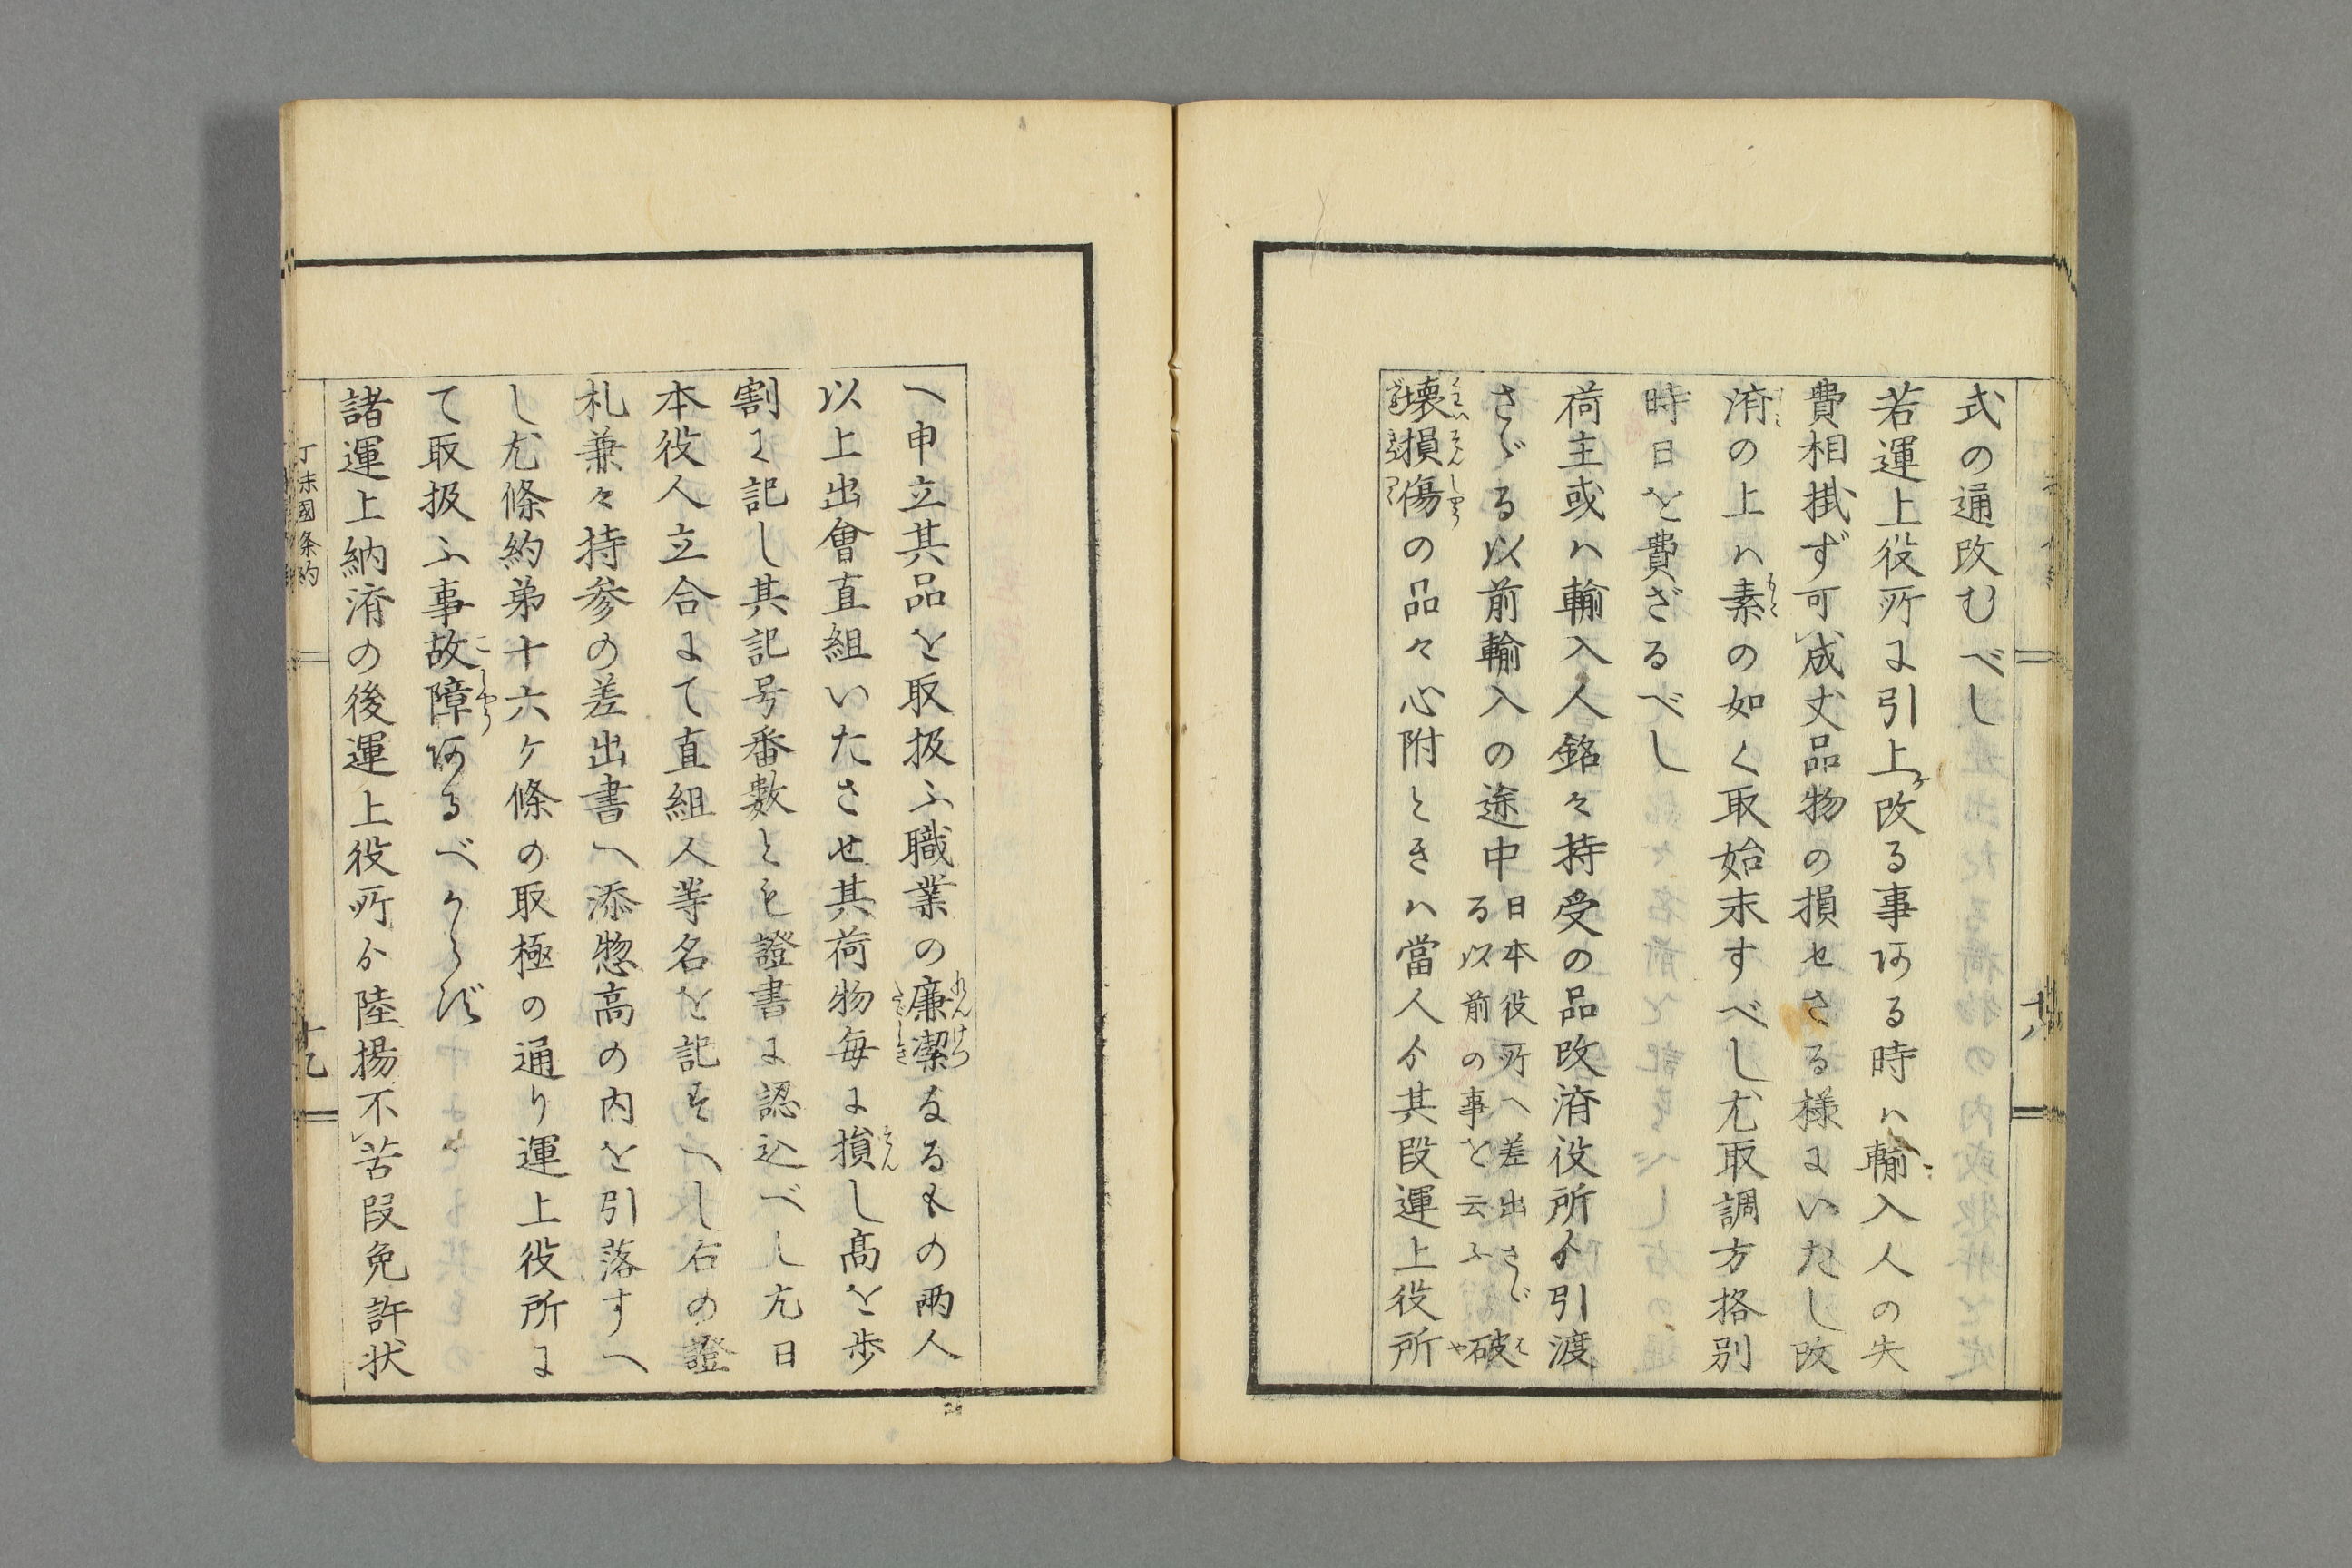 式の通改むべし
若運上役所に引上ケ改る事ある時ハ輸入人の失
費相掛ず可成丈品物の損せさる様にいたし改
済の上ハ素の如く取始末すべし尤取調方格別
時日を費ざるべし
荷主或ハ輸入人銘々持受の品改済役所ゟ引渡
さゞる以前輸入の途中日本役所へ差出さゞる以前の事を云ふ破
壊損傷の品々心附ときハ當人ゟ其段運上役所
十八
へ申立其品を取扱ふ職業の廉潔なるもの両人
以上出會直組いたさせ其荷物毎に損し高を歩
割に記し其記号番數とも證書に認込べし尤日
本役人立合にて直組人等名を記すへし右の證
札兼々持参の差出書へ添惣高の内を引落すへ
し尤條約弟十六ケ條の取極の通り運上役所に
て取扱ふ事故障あるべからず
諸運上納済の後運上役所ゟ陸揚不苦段免許状
丁抹國条約
十九